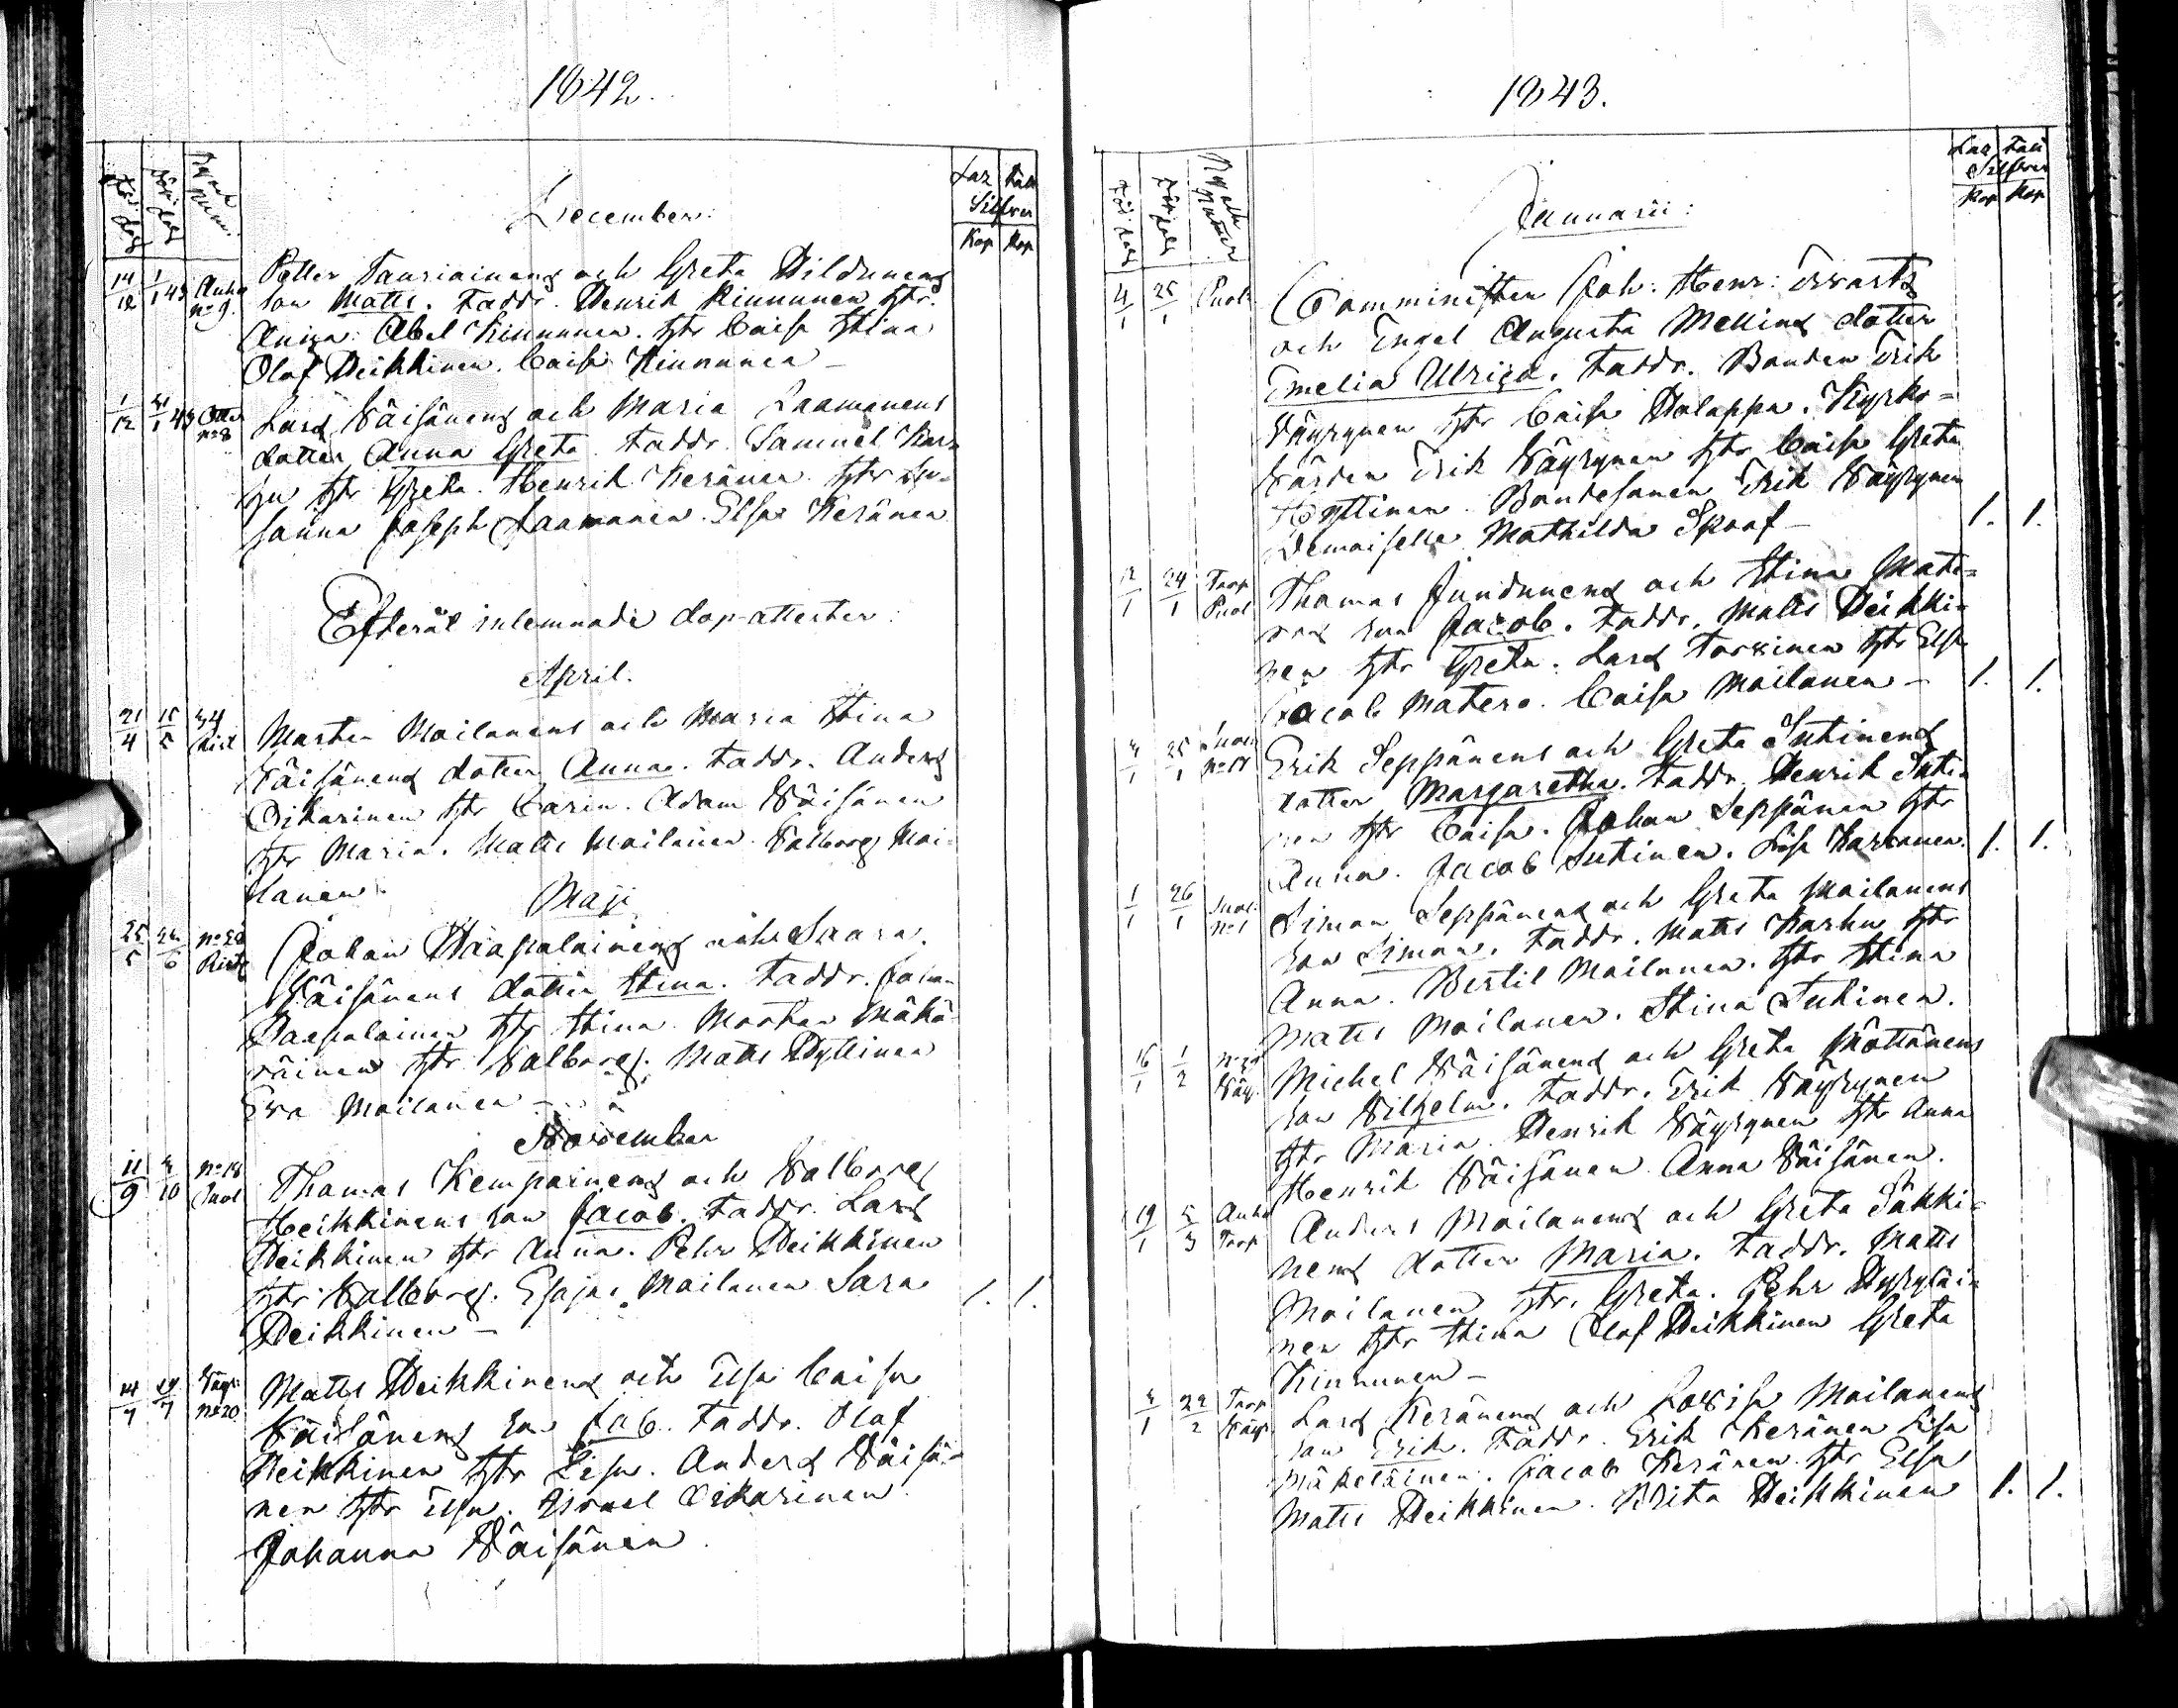 1842.
Föd: dag
Döp: dag
By och num.
Laz. Fatt.
Silfver
Kop Kop
December:
14/12 1/1 43 Anho No 9. Petter Tauriainens och Greta Hildunens
son Matts. Faddr. Henrik Kinnunen hstr.
Anna. Abel Kinnunen. hstr Caisa Stina
Olof Heikkinen. Caisa Kinnunen –
1/12 43 No 8 Lars Väisänens och Maria Laamanens
dotter Anna Greta. Faddr. Samuel Kar-
hu hstr Greta. Henrik Keränen hstr Su-
sanna Joseph Laamanen. Elsa Keränen
Efteråt inlemnade dop-attester:
April.
21/4 15/5 34 Rist Morten Moilanens och Maria Stina
Väisänens dotter Anna. Faddr. Anders
Oikarinen hstr Carin. Adam Väisänen
hstr Maria. Matts Moilanen. Valborg Moi-
lanen.
Maji
25/5 Rist Johan Haapalainens och Saara
Väisänens dotter Stina. Faddr. Johan
Haapalainen hstr Stina. Morten Mäkä-
räinen hstr Valborg. Matts Hyttinen
Eva Moilanen –
November
11/9 /10 No 18 Thomas Kempainens och Valborg
Heikkinens son Jacob. Faddr. Lars
Heikkinen hstr Anna. Pehr Heikkinen
hstr Valborg. Esajas Moilanen Sara 1. 1.
Heikkinen –
No 20 Matts Heikkinens och Elsa Caisa
Väisänens son Job. Faddr. Olof
Heikkinen hstr Lisa. Anders Väisä-
nen hstr Elsa. Israel Oikarinen.
Johanna Väisänen.
1843.
Föd: dag
Döp: dag
By och Numer
Laz Fatt
Silfver
Kop Kop
Januarii:
4/1 25/1 Puol Comministern Joh: Henr: Ervasts
och Engel Augusta Mellins dotter
Emelia Ulrica. Faddr. Bonden Erik
Väyrynen hstr Caisa Holappa. Kyrko-
värden Erik Väyrynen hstr Caisa Greta
Hyttinen. Bondesonen Erik Väyrynen
Demoiselle Mathilda Skoof – 1. 1.
12/1 24/1 Torp Puol Thomas Jundunens och Stina Mate-
ros son Jacob. Faddr. Matts Heikki-
nen hstr Greta. Lars Torvinen hstr Elsa
Jacob Matero. Caisa Moilanen – 1. 1.
25/1 Erik Seppänens och Greta Sutinens
dotter Margaretha. Faddr. Henrik Suti-
nen hstr Caisa. Johan Seppänen hstr
Anna. Jacob Sutinen. Lisa Karvonen. 1. 1.
1/1 26/1 No 1 Simon Seppänens och Greta Moilanens
son Simon. Faddr. Matts Karhu hstr
Anna. Bertil Moilanen. hstr Stina
Matts Moilanen. Stina Sutinen.
16/1 1/2 Väy. Michel Väisänens och Greta Möttönens
son Vilhelm. Faddr. Erik Väyrynen
hstr Maria. Henrik Väyrynen hstr Anna
Henrik Väisänen Anna Väisänen.
19/1 5/3 Anho Torp Anders Moilanens och Greta Säkki-
nens dotter Maria. Faddr. Matts
Moilanen hstr. Greta. Pehr Hyryläi-
nen hstr Stina Olof Heikkinen Greta
Kinnunen –
22/2 Torp Väyr. Lars Keränens och Lovisa Moilanens
son Erik. Faddr. Erik Keränen Lisa
Mäkeläinen. Jacob Keränen hstr Elsa
Matts Heikkinen. Brita Heikkinen 1. 1.